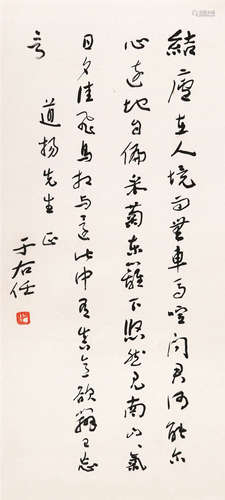 結廬在人境而無車馬喧問君何能尔
心遠地自偏采菊東籬下悠然見南山山氣
日夕佳飛鳥相與還此中有真意欲辯已忘
言
道揚先生正
于右任